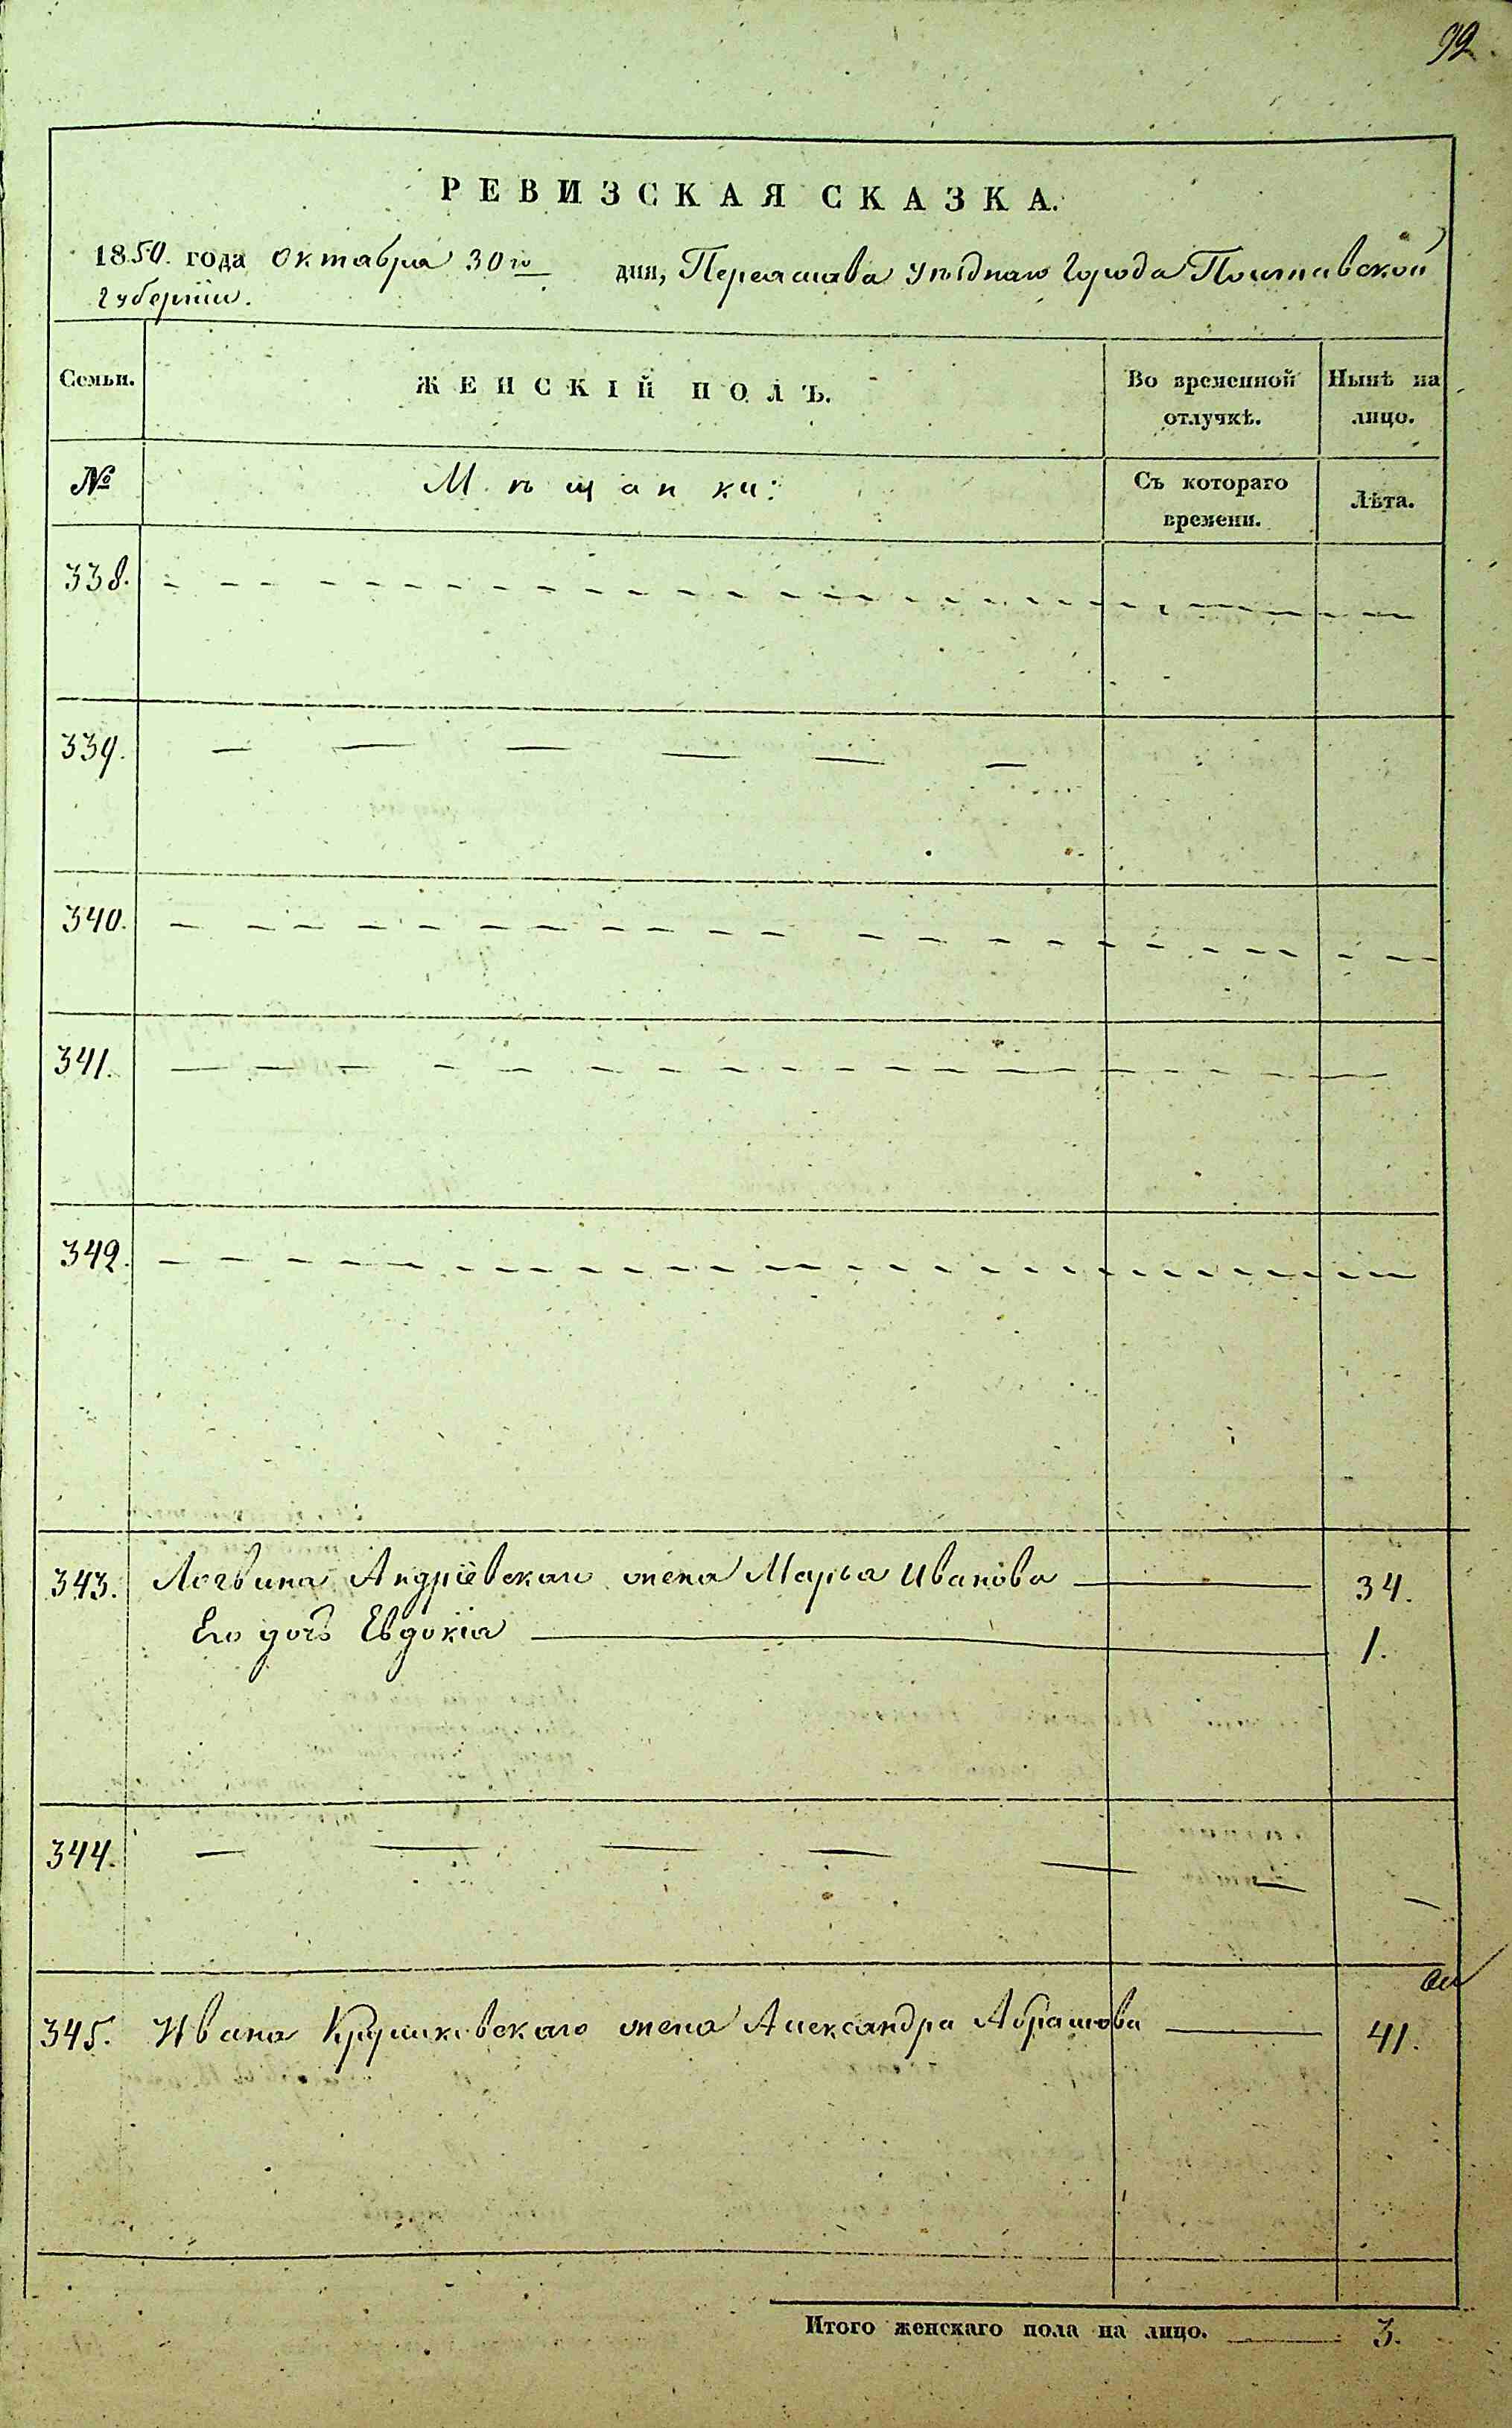 92.
РЕВИЗСКАЯ СКАЗКА.
1850. года октября 30го дня, Переяслава уѣзднаго города Полтавской
Губерніи.
Семьи. ЖЕНСКІЙ ПОЛЪ. Во временной отлучкѣ. Нынѣ на лицо.
№ Мѣщанки: Съ котораго времени. Лѣта.
338.
339.
340.
341.
342.
343. Логвина Андріевскаго жена Марья Иванова 34.
Его дочь Евдокія 1.
344.
345. Ивана жена Александра Абрамова 41.
Итого женскаго пола на лицо. 3.